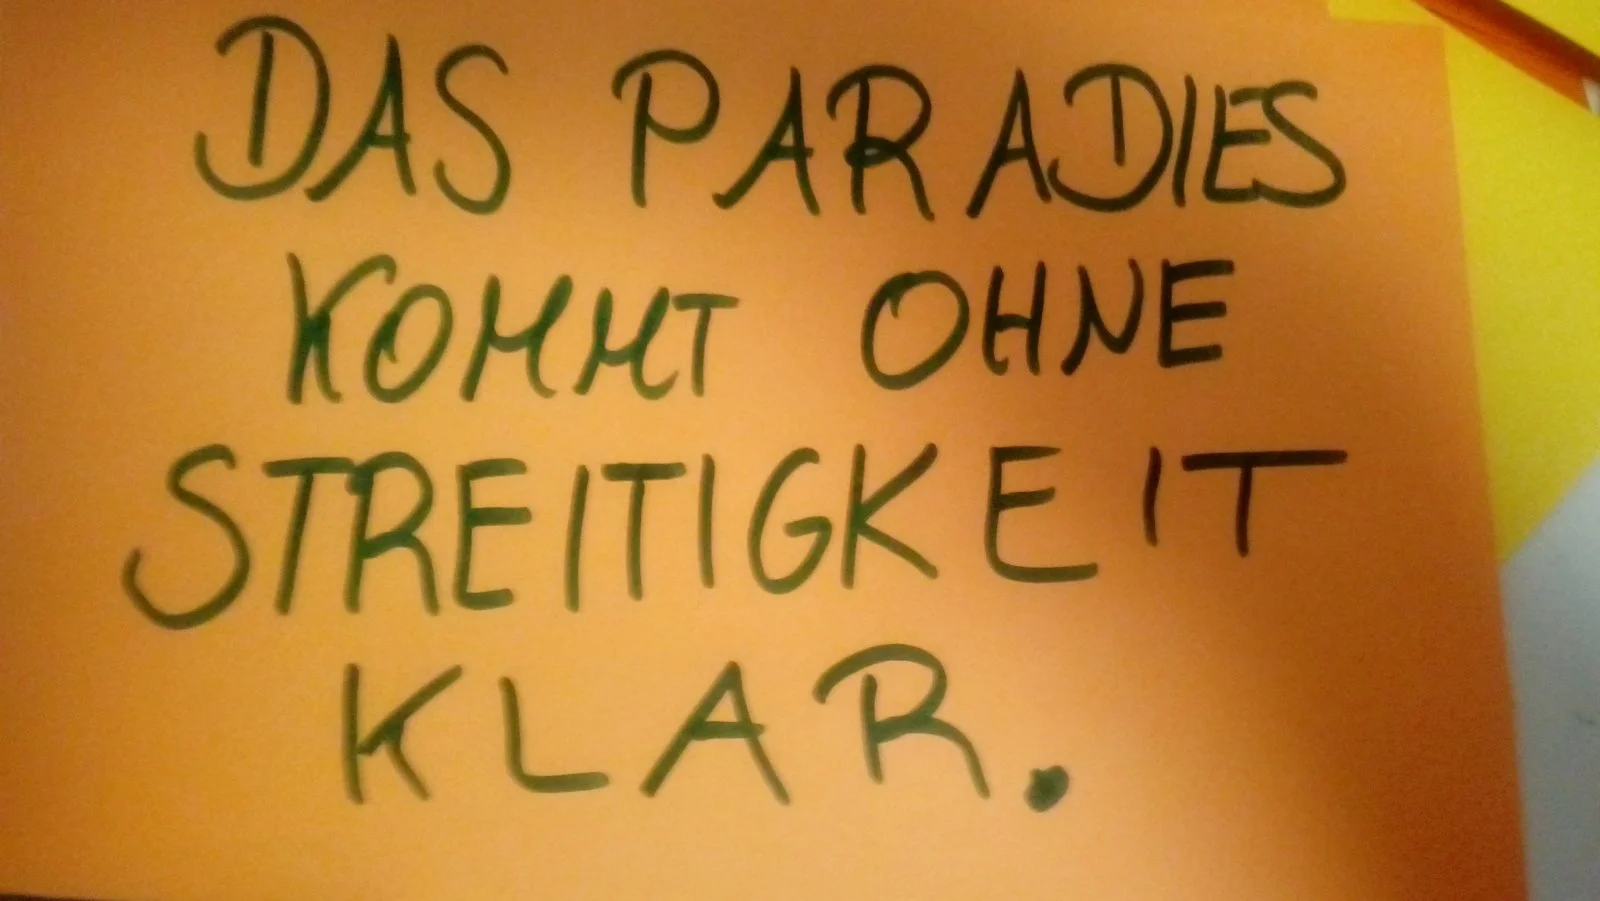 DAS PARADIES
KOMMT OHNE
STREITIGKEIT
KLAR.